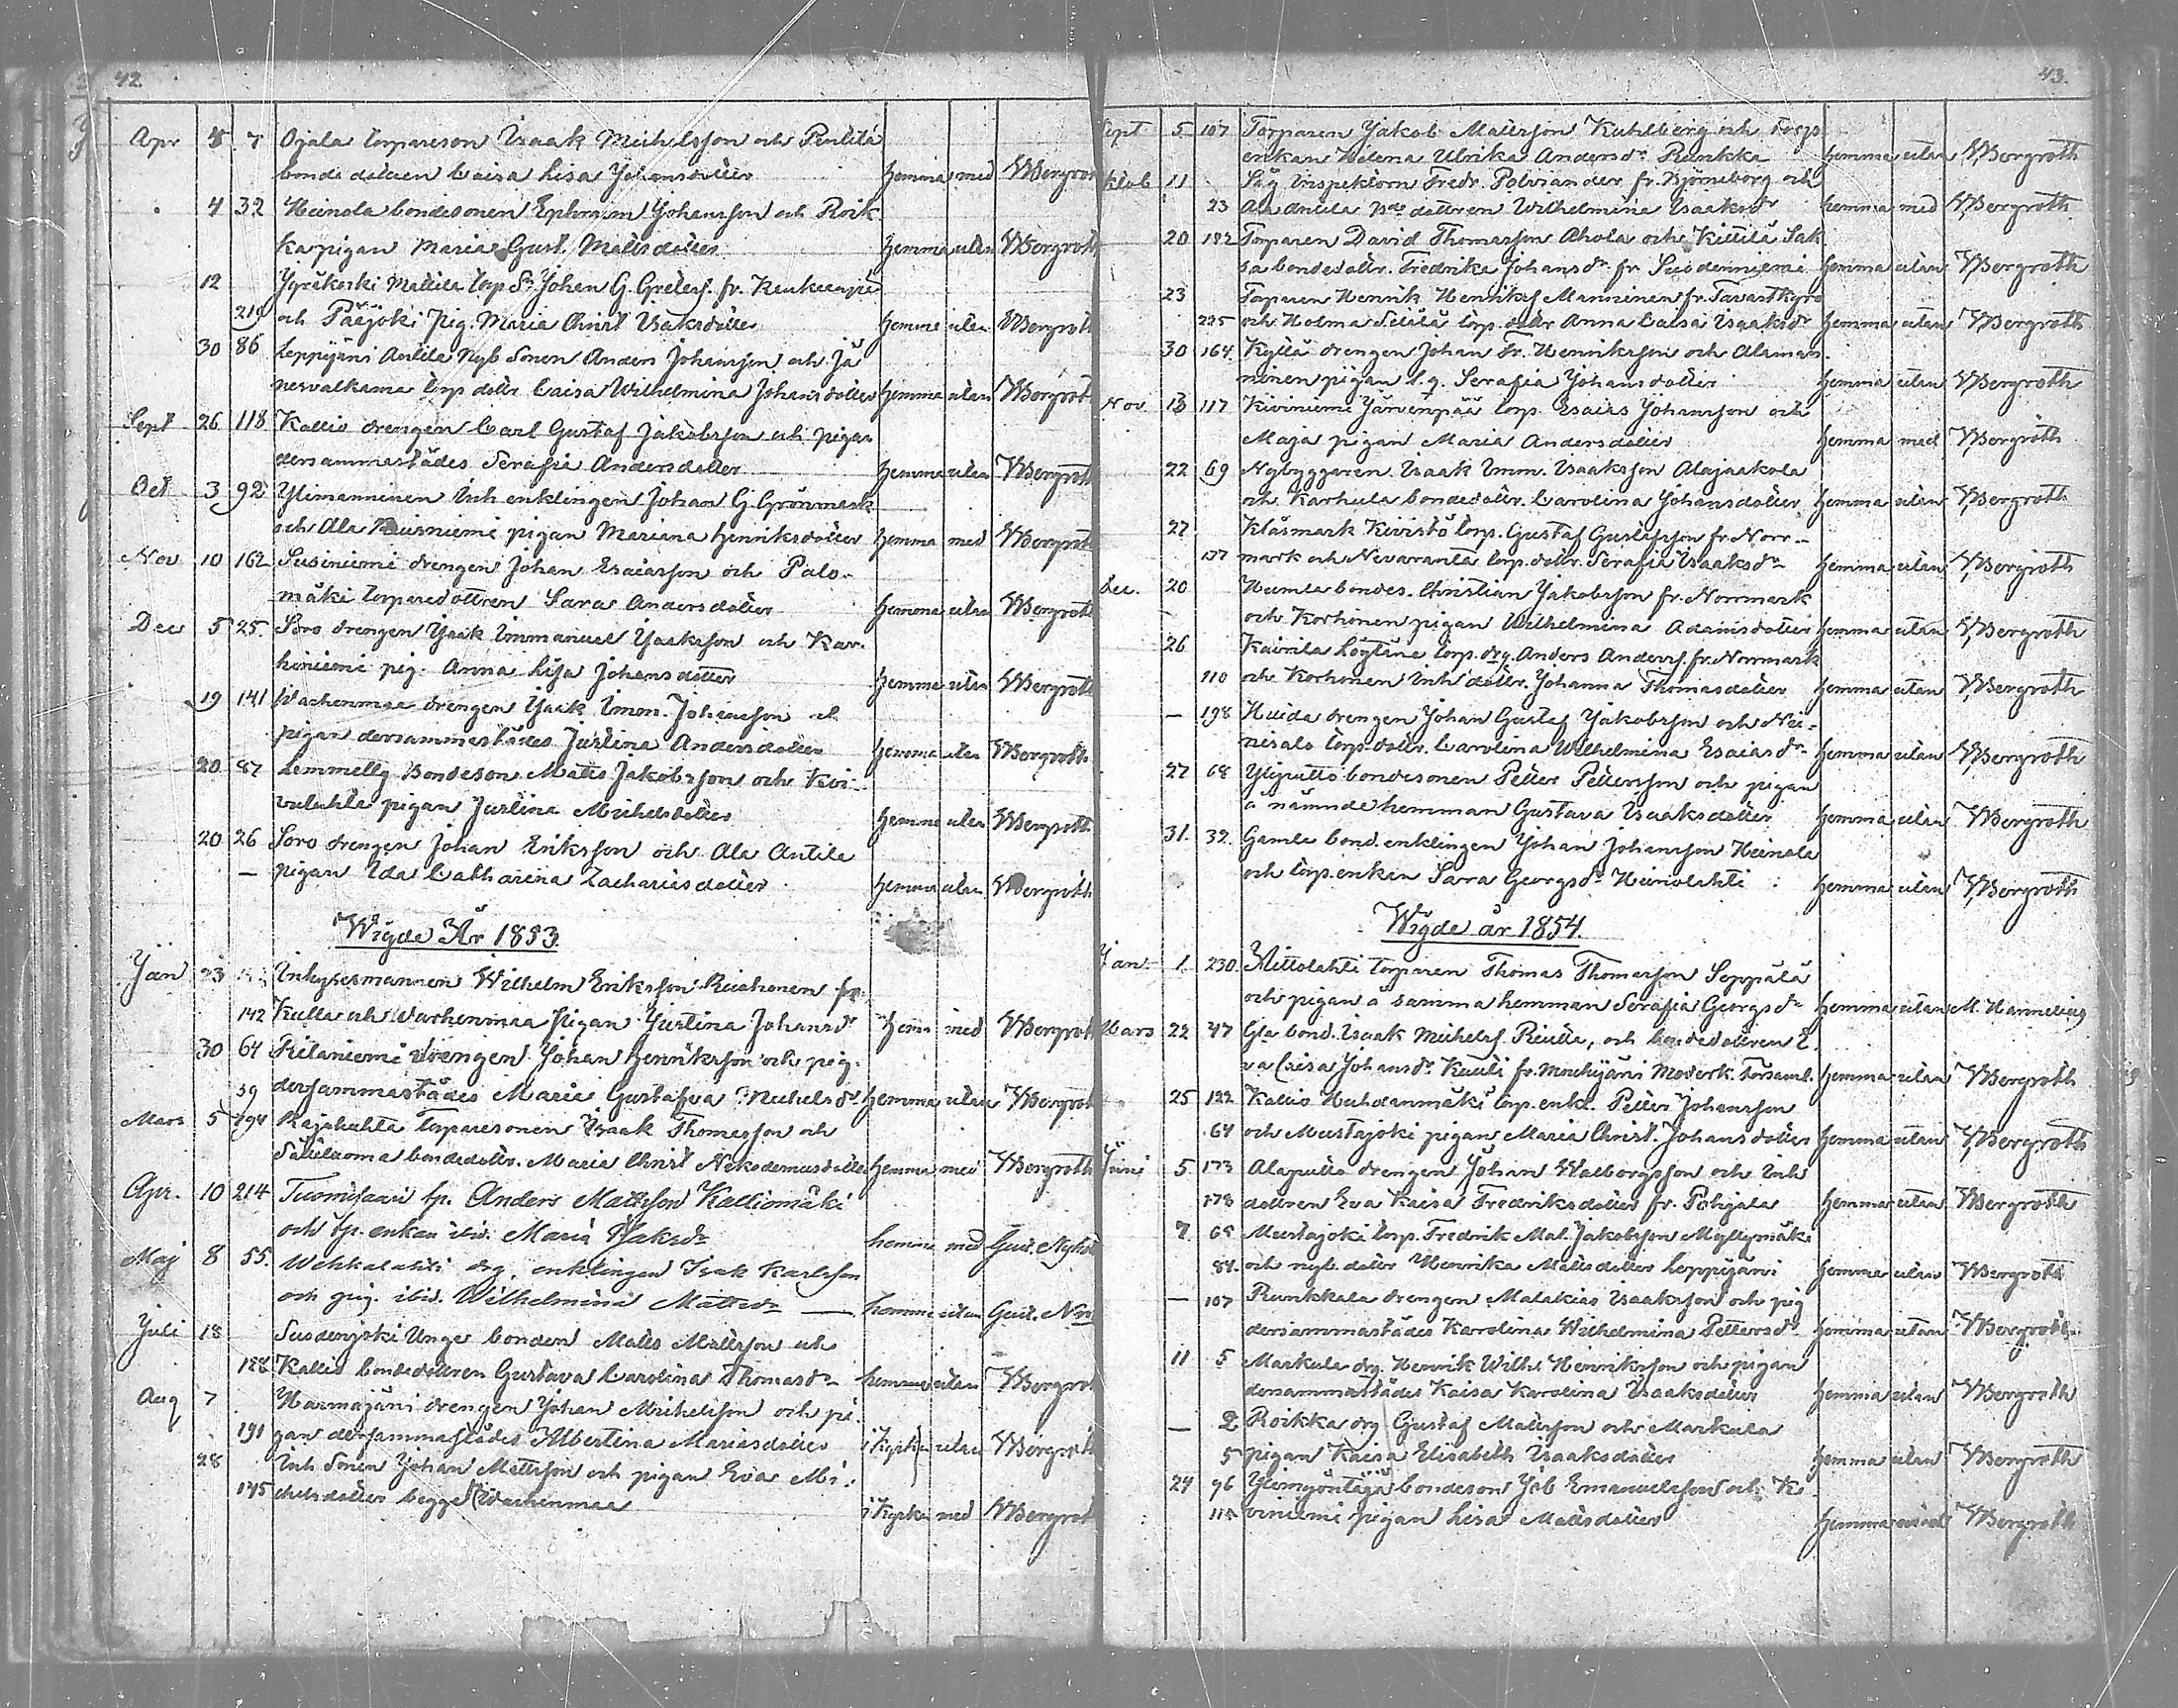 42.
Apr 4 7 Ojala torpareson Isaak Michelsson och Penttilä
bonde dottren Caisa Lisa Johansdotter hemma med WBergroth
4 32 Heinola bondesonen Ephraim Johansson och Roik
ka pigan Maria Gust. Mattsdotter hemma utan WBergroth
12 Mattila torp Sn Johan G. fr.
219 och Pääjöki pig. Maria Christ Isaksdotter hemma utan WBergroth
30 86 Leppijärvi Anttila Nyb Sonen Anders Johansson och Jä
torp dottr Caisa Wilhelmina Johansdotter hemma utan WBergroth
Sept 26 118 Kallio drengen Carl Gustaf Jakobsson och pigan
dersammastädes Serafia Andersdotter hemma utan WBergroth
Oct 3 92 Ylimanninen Inh enklingen Johan G. Grönmark
och Ala pigan Mariana Henriksdotter hemma med WBergroth
Nov 10 162 Susiniemi drengen Johan Esaiasson och Palo-
mäki torparedottren Sara Andersdotter hemma utan WBergroth
Dec 5 25. Soro drengen Isaak Immanuel Isaaksson och Kar-
hiniemi pig. Anna Lisa Johansdotter hemma utan WBergroth
19 141 Wachenmaa drengen Isaak Imm. Johansson och
pigan dersammastädes Justina Andersdotter hemma utan WBergroth
20 87 Lemmetty Bondeson Matts Jakobsson och Kivi-
pigan Justina Michelsdotter hemma utan WBergroth
20 26 Soro drengen Johan Eriksson och Ala Antila
— pigan Ida Catharina Zachariasdotter hemma utan WBergroth
Wigde År 1853.
Jan 23 Inhysesmannen Wilhelm Eriksson fr.
142 Kulla och Wachenmaa pigan Justina Johansdr hem med WBergroth
30 64 drengen Johan Henriksson och pig.
39 dersammastädes Maria Gustafva Michelsdr hemma utan WBergroth
Mars 5 194 Rajalahta Torparesonen Isaak Thomasson och
bondedottr. Maria Christ Nikodemusdotter hemma med WBergroth
Apr. 10 214 Tuomisaari tp. Anders Mattsson Kalliomäki
och tp. enkan ibid. Maria Isaksdr hemma med Gust.
Maj 8 55. drg. enklingen Isak Karlsson
och pig. ibid. Wilhelmina Mattsdr — hemma utan Gust.
Juli 18 Susdenjoki Unge bonden Matts Mattsson och
128 Kallio bondedottren Gustava Carolina Thomasdr hemma utan WBergroth
Aug 7 Harmajärvi drengen Johan Michelsson och pi-
191 gan dersammastädes Albertina Mariasdotter i kyrkan utan WBergroth
28 Inh Sonen Johan Mattsson och pigan Eva Mi-
145 chelsdotter begge Wachenmaa i kyrkan med WBergroth
43.
Sept 5 107 Torparen Jakob Mattsson Kuhlberg och torp
enkan Helena Ulrika Andersdr Runkka hemma utan WBergroth
Octob 11 Såg Inspektorn Fredr. Polviander fr. Björneborg och
23 Ala Antila Bde dottren Wilhelmina Isaaksdr hemma med WBergroth
20 192 Torparen David Thomasson Ahola och Kittilä Sak
sa bondedottr. Fredrika Johansdr fr. Suodenniemi hemma utan WBergroth
23 Torparen Henrik Henriksf Manninen fr. Tavastkyro
225 och Holma Seitälä torp. dottr Anna Caisa Isaaksdr hemma utan WBergroth
30 164. Kyttä drengen Johan Fr. Henriksson och Alaman-
ninen pigan l. q. Serafia Johansdotter hemma utan WBergroth
Nov 13 117 Kiviniemi Järvenpää torp. Esaias Johansson och
Maja pigan Maria Andersdotter hemma med WBergroth
22 69 Nybyggaren Isaak Imm. Isaaksson Alajaakola
och Karhula bondedottr. Carolina Johansdotter hemma utan WBergroth
27 Klåsmark Kivistö torp. Gustaf Gustafsson fr. Norr-
177 mark och Nevaranta torp. dottr. Serafia Isaaksdr hemma utan WBergroth
Dec. 20 Humla bondes. Christian Jakobsson fr. Norrmark
och Korhonen pigan Wilhelmina Adamsdotter hemma utan WBergroth
26 Kairila torp. drg. Anders Anderss. fr. Norrmark
110 och Korhonen Inh dottr. Johanna Thomasdotter hemma utan WBergroth
— 198 Huida drengen Johan Gustaf Jakobsson och Nii-
nisalo torp. dottr. Carolina Wilhelmina Esaiasdr hemma utan WBergroth
27 68 Yliputto bondesonen Petter Pettersson och pigan
å nämnde hemman Gustava Isaaksdotter hemma utan WBergroth
31. 32. Gamla bond. enklingen Johan Johansson Heinola
och torp. enkan Sara Georgsdr Heinolahti hemma utan WBergroth
Wigde år 1854.
Jan 1. 230. torparen Thomas Thomasson Seppälä
och pigan å samma hemman Serafia Georgsdr hemma utan M. Hannelius
Mars 22 47 Gla bond. Isaak Michelsf. och bondedottren E-
va Caisa Johansdr. Kuuli fr. Mouhijärvi Moderk. församl. hemma utan WBergroth
25 122 Kallio Huhdanmäki torp. enkl. Petter Johansson
64 och Mustajoki pigan Maria Christ. Johansdotter hemma utan WBergroth
Juni 5 173 Alaputto drengen Johan Walborgsson och Inh
178 dottren Eva Kaisa Fredriksdotter fr. Pohjala hemma utan WBergroth
7. 65 Mustajoki torp. Fredrik Mat. Jakobsson Myllymäki
84. och nyb. dottr Henrika Mattsdotter Leppijärvi hemma utan WBergroth
— 107 Runkkala drengen Malakias Isaaksson och pig
dersammastädes Karolina Wilhelmina Pettersdr hemma utan WBergroth
11 5 Markula drg. Henrik Wilh. Henriksson och pigan
dersammastädes Kaisa Karolina Isaaksdotter hemma utan WBergroth
— 2 Roikka drg Gustaf Mattsson och Markula
5 pigan Kaisa Elisabeth Isaaksdotter hemma utan WBergroth
24 96 bondeson Job Emanuelsson och Ki-
115 viniemi pigan Lisa Mattsdotter hemma WBergroth